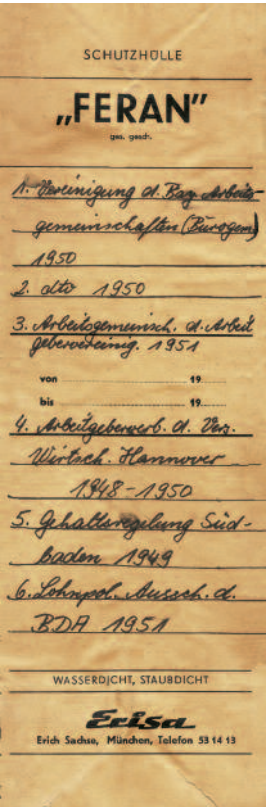 SCHUTZHÜLLE
„FERAN"
ges. gesch.
1. Vereinigung d. Bay. Arbeits-
gemeinschaften (Bürogem)
1950
2. dto 1950
3. Arbeitsgemeinsch. d. Arbeit
gebervereinig. 1951
von 19
bis 19
4. Arbeitgeberverb. d. Vers.
Wirtsch. Hannover
1948-1950
5. Gehaltsregelung Süd-
baden 1949
6. Lohnpol. Aussch. d.
BDA 1951
WASSERDICHT, STAUBDICHT
Erisa
Erich Sachse, München, Telefon 53 14 13